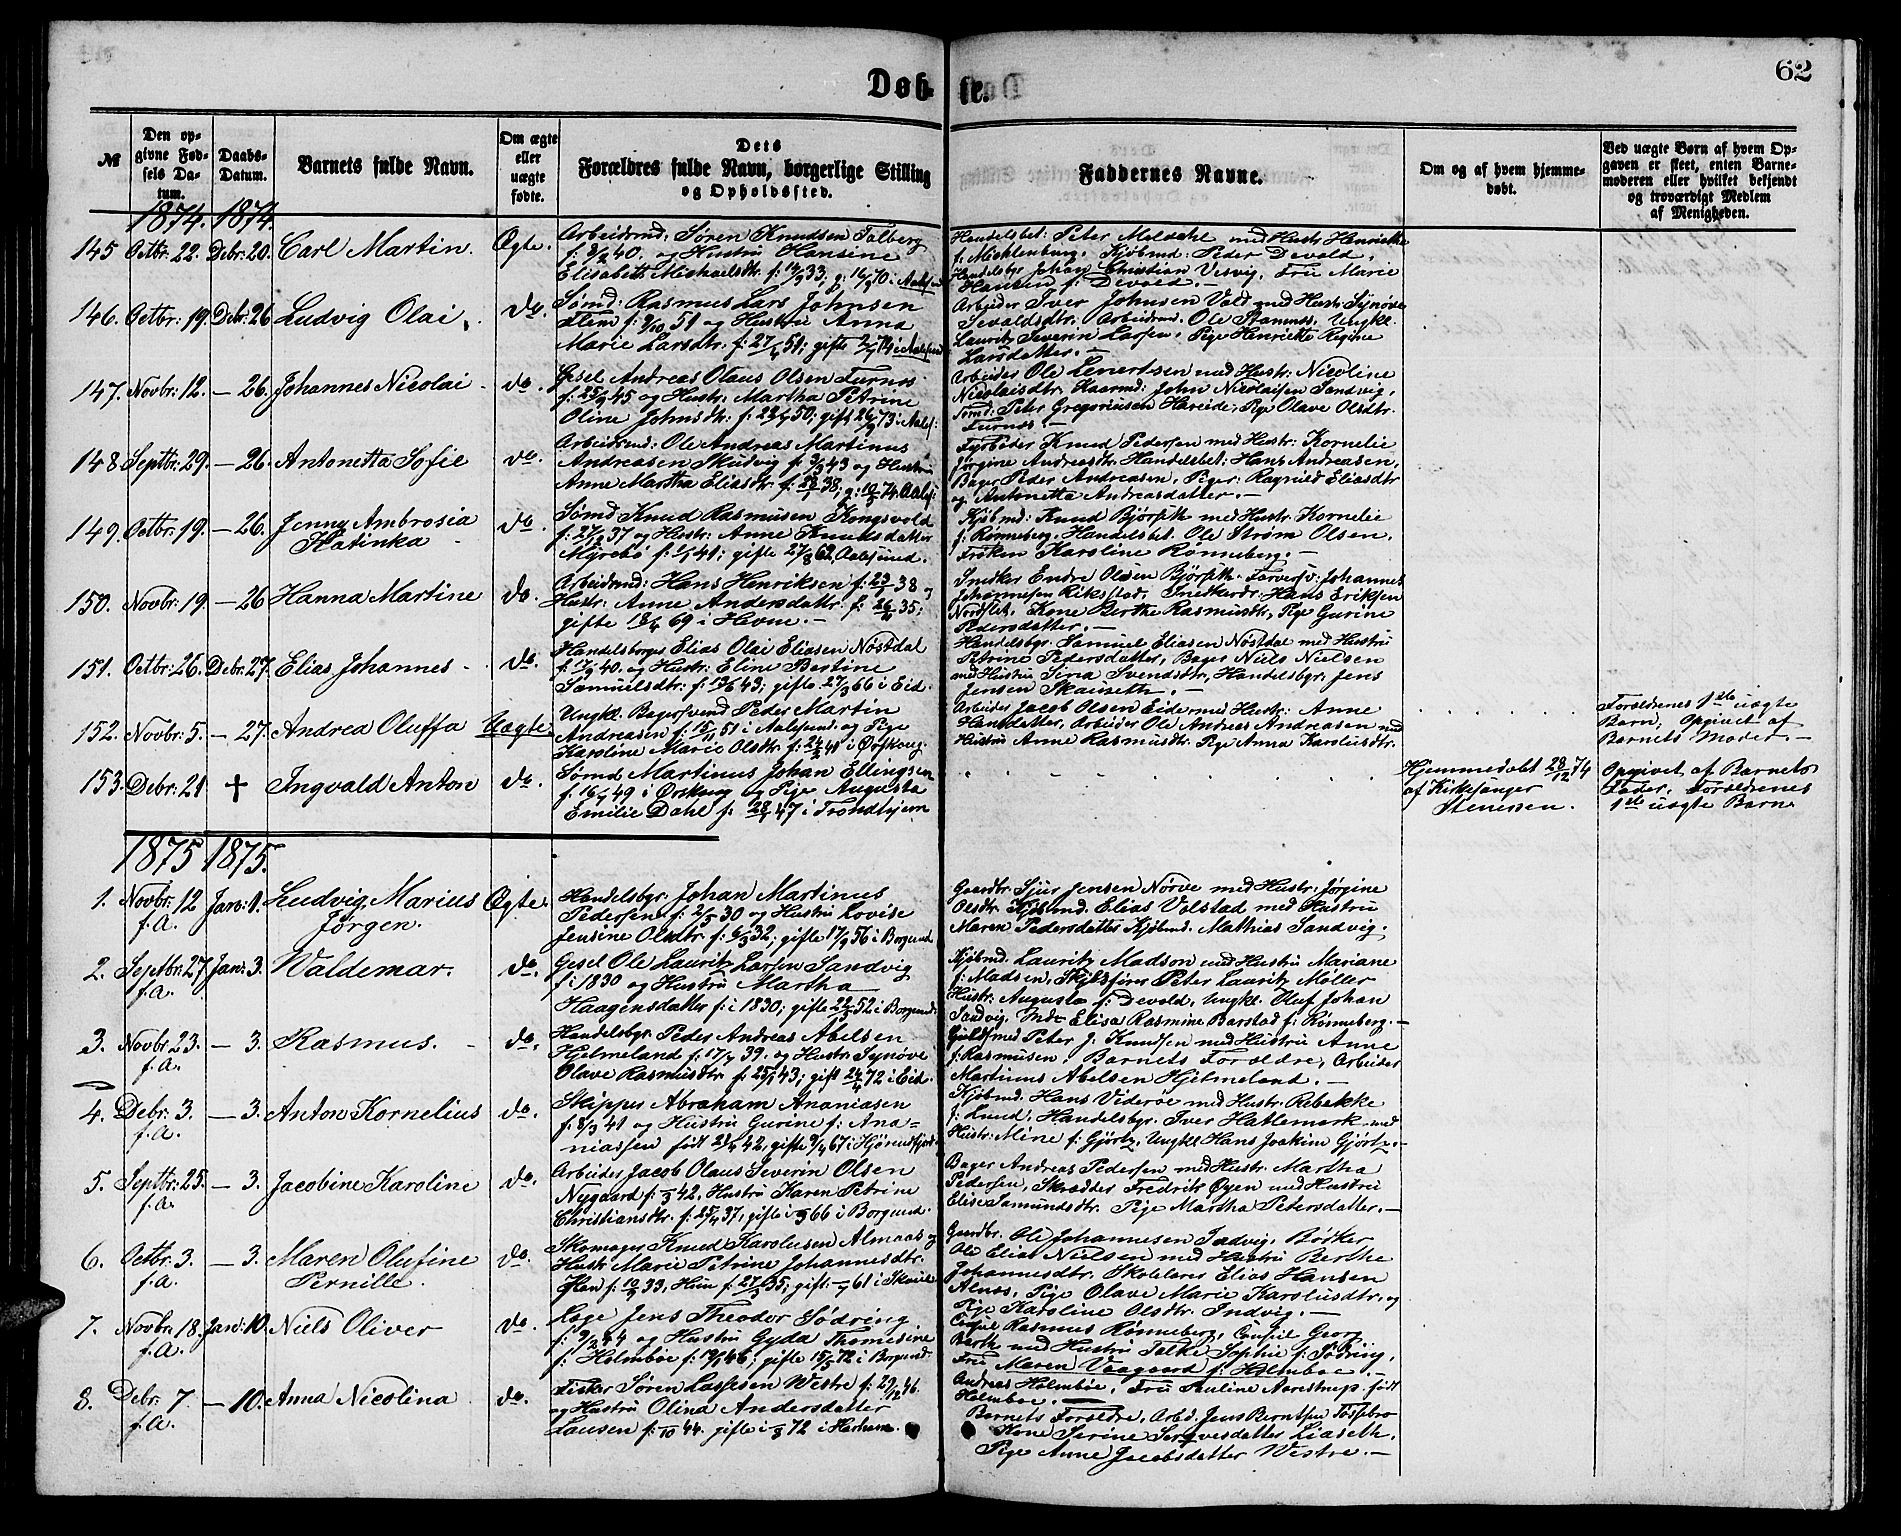 62
Døb-
te.
№
Den op-
givne Fød-
sels Da-
tum.
Daabs-
Datum.
Barnets fulde Navn.
Om ægte
eller
uægte
fødte.
Dets
Forældres fulde Navn, borgerlige Stilling
og Opholdssted.
Faddernes Navne.
Om og af hvem hjemme-
døbt.
Ved uægte Børn af hvem Op-
gaven er skeet, enten Barne-
moderen eller hvilket bekjendt
og troværdigt Medlem
af Menigheden.
1874. 1874.
145 Octbr: 22. Debr: 20. Carl Martin. Ægte.
Arbeidsmd: Søren Knudsen Talberg
f: 40. og Hustru Hansine
Elisabeth Michaelsdtr. f: 33, g: 70. Aalesund
Handelsbet: Peter Moldahl med Hustr Henriette
f: Mechlenburg, Kjøbmd: Peder Devold,
Handelsbgr Johan Christian Vesvig, Fru Marie
Hansen f: Devold. —
146. Octbr: 19. Debr: 26 Ludvig Olai. do.
Sømd: Rasmus Lars Johnsen
Flem f: 9/10 51 og Hustru Anna
Marie Larsdtr: f: 51; gifte 74 i Aalesund
Arbeider Iver Johnsen Vold med Hustr Synøve
Sevaldsdtr: Arbeidsmd: Ole Stamnes. Ungkl.
Lauritz Severin Larsen, Pige Henriette Regine
Larsdatter. —
147. Novbr: 12. — 26. Johannes Nicolai. do.
Gesel Andreas Olaus Olsen Furnes
f: 25/9 45 og Hustr: Martha Petrine
Oline Johnsdtr. f: 50; gift 73 i Aales:
Arbeider Ole Lenertsen med Hustr: Nicoline
Nicolaisdtr. Haarmd: John Nicolaisen Sandvig,
Sømd: Peter Gregoriusen Hareide, Pige Olave Olsdtr.
Furnes. —
148 Septbr: 29. — 26. Antonetta Sofie do.
Arbeidsmd: Ole Andreas Martinus
Andreasen Skudvig f: 43 og Hustru
Anne Martha Eliasdtr f: 38; g: 74 Aales:
Fyrbøder Knud Pedersen med Hustr: Kornelie
Jørgine Andreasdtr. Handelsbet: Hans Andreasen,
Bager Peder Andreasen, Piger: Ragnild Eliasdtr
og Antonetta Andreasdatter. —
149. Octbr: 19. — 26. Jenny Ambrosia
Katinka
do.
Sømd Knud Rasmusen Kongsvold
f: 37 og Hustr: Anne Knudsdatter
Myrebø f: 41; gifte 62, Aalesund.
Kjøbmd: Knud Bjørseth med Hustr: Kornelie
f. Rønneberg, Handelsbet. Ole Strøm Olsen,
Frøken Karoline Rønneberg. —
150. Novbr: 19. — 26 Hanna Martine do.
Arbeidsmd: Hans Henriksen f: 38 og
Hustr: Anne Andersdattr. f: 35;
gifte 69 i Hevne. —
Snedker Endre Olsen Bjørseth. Farversv: Johannes
Johannesen Rikstad, Snedkerdr: Hans Eriksen
Nordflet, Kone Berthe Rasmusdtr, Pige Gurine
Pedersdatter. —
151. Octbr: 26. Debr: 27. Elias Johannes do.
Handelsborger Elias Olai Eliasen Nøstdal
f: 40. og Hustr: Eline Bertine
Samuelsdtr: f: 43; gifte 27/9 66 i Eid.
Handelsbgr. Samuel Eliasen Nøstdal med Hustru
Petrine Pedersdatter, Bager Niels Nielsen
med Hustru Siria Svendsdtr, Handelsbgr: Jens
Jensen Skauseth. —
152. Novbr: 5. — 27. Andrea Oluffa Uægte.
Ungkl. Bagersvend Peder Martin
Andreasen f: 15/11 51 i Aalesund. og Pige
Karoline Marie Olsdtr. f: 24/2 41 i Ørskoug.
Arbeider Jacob Olsen Eide med Hustr: Anne
Hansdatter, Arbeider Ole Andreas Andreasen med
Hustru Anne Rasmusdtr. Pige Anna Karolusdtr.
Forældrenes 1ste uægte
Barn, Opgivet af
Barnets Moder. —
153. Debr: 21 + Ingvald Anton do.
Sømd Martinus Johan Ellingsen
f: 16 49 i Ørskoug og Pige Augusta
Emilie Dahl f: 28 47 i Trondhjem
Hjemmedøbt 28/12 74
af Kirkesanger
Stenersen.
Opgivet af Barnets
Fader, Forældrenes
1ste uægte Barn
1875 1875.
1. Novbr: 12
f. A.
Janv: 1. Ludvig Marius
Jørgen.
Ægte.
Handelsbgr. Johan Martinus
Pedersen f: 30 og Hustru Lovise
Jensine Olsdtr f: 6/3 32; gifte 17/9 56 i Borgund
Gaardbr. Sjur Jensen Nørve med Hustr: Jørgine
Olsdtr. Kjøbmd. Elias Volstad med Hustru
Maren Pedersdatter, Kjøbmd. Mathias Sandvig.
2. Septbr: 27
f. a.
Jan: 3. Waldemar. do.
Gesel Ole Lauritz Larsen Sandvig
f: i 1830 og Hustru Martha
Haagensdatter f: i 1830; gifte 52 i Borgund
Kjøbmd. Lauritz Madson med Hustru Mariane
f: Madsen, Skibsfører Peter Lauritz Møller
Hustr: Augusta f: Devold, Ungkl: Oluf Johan
Sandvig, Elisa Rasmine Barstad f: Rønneberg. —
3. Novbr: 23.
f. A.
— 3. Rasmus. do.
Handelsbgr. Peder Andreas Abelsen
Hjelmeland f: 17 39. og Hustr: Synøve
Olave Rasmusdtr. f: 25 43; gift 24/4 72 i Eid.
Guldsmed Peter J. Knudsen med Hustru Anne
f: Rasmusen, Barnets Forældre, Arbeider
Martinus Abelsen Hjelmeland. —
4. Debr: 3.
f. A.
— 3. Anton Kornelius do.
Skipper Abraham Ananiasen
f: 8/3 41 og Hustru Gurine f: Ana-
niassen født 42, gifte 67 i Hjørundfjord
Kjøbmd. Hans Viderøe med Hustr. Rebekke
f: Lund. Handelsbgr. Iver Hatlemark med
Hustr: Mine f: Gjørtz, Ungkl Hans Joakim Gjørtz. —
5. Septbr: 25.
f. A.
— 3. Jacobine Karoline do.
Arbeider Jacob Olaus Severin Olsen
Nygaard f: 42, Hustru Karen Petrine
Christiansdtr. f: 25/4 37, gifte i 66 i Borgund.
Bager Andreas Pedersen med Hustr. Martha
Pedersen, Skrædder Fredrik Øyen med Hustru
Elise Samundsdtr. Pige Martha Petersdatter. —
6. Octbr: 3.
f. a.
— 3. Maren Olufine
Pernille.
do.
Skomager Knud Karolusen Almaas og
Hustr Marie Petrine Johannesdtr.
Han f: 33, Hun f: 27 35; gift: 61 i Skøule
Gaardbr. Ole Johannesen Indvig, Bødker
Ole Elias Nielsen med Hustru Berthe
Johannesdtr. Skolelærer Elias Hansen
Alnæs, Pige Olave Marie Karolusdtr, og
Pige Karoline Olsdtr. Indvig. —
7. Novbr: 18.
f. A.
Jan: 10. Niels Oliver do.
Læge Jens Theodor Sødring
f: 44 og Hustru Gyda Thomesine
f: Holmboe f: 46; gifte 15 72 i Borgund.
Consul Rasmus Rønneberg, Consul Georg
Barth med Hustru Talke Sophie f: Sødring,
Fru Maren Vaagaard f: Holmboe. —
Andreas Holmboe, Fru Pauline Aarestrup født
Holmboe.
8. Debr: 7
f. A.
— 10. Anna Nicolina do.
Fisker Søren Lassesen Westre f: 29/12 46.
og Hustru Olina Andersdatter
Lausen f: 44. gifte i 72 i Harham.
Barnets Forældre, Arbd. Jens Berntsen Tøssebro
Kone Serine Servesdatter Liaseth,
Pige Anne Jacobsdatter Westre. —